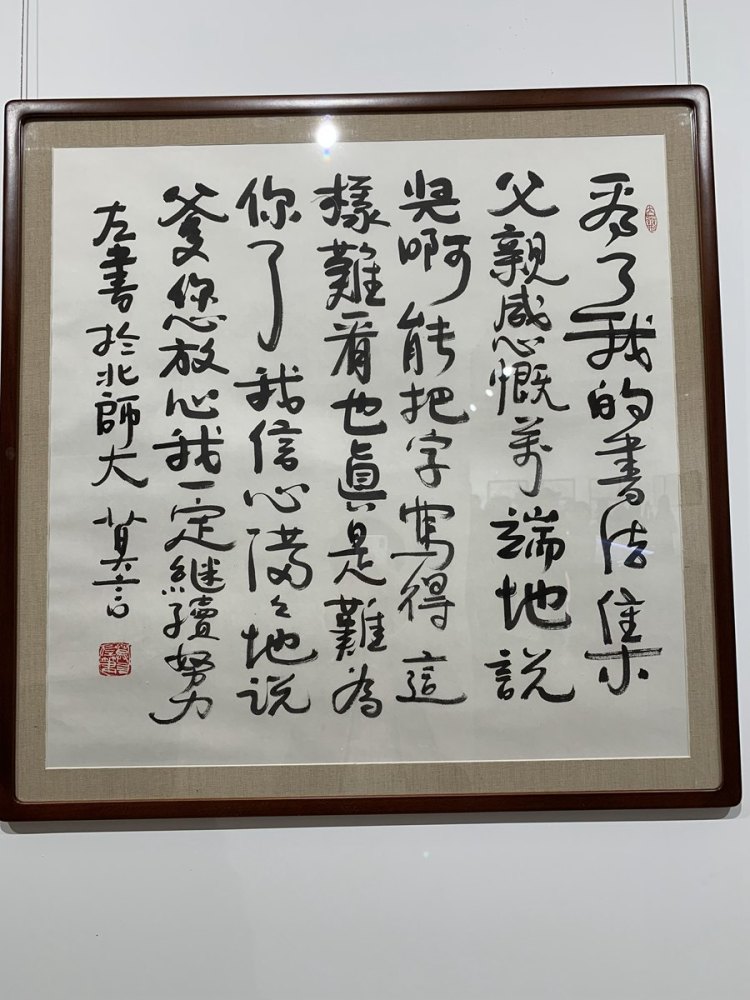 看了我的書法集
父親感慨萬端地説
兒啊能把字寫得這
樣難看也眞是難為
你了我信心滿々地说
爹您放心我一定繼續努力
左書於北師大 莫言